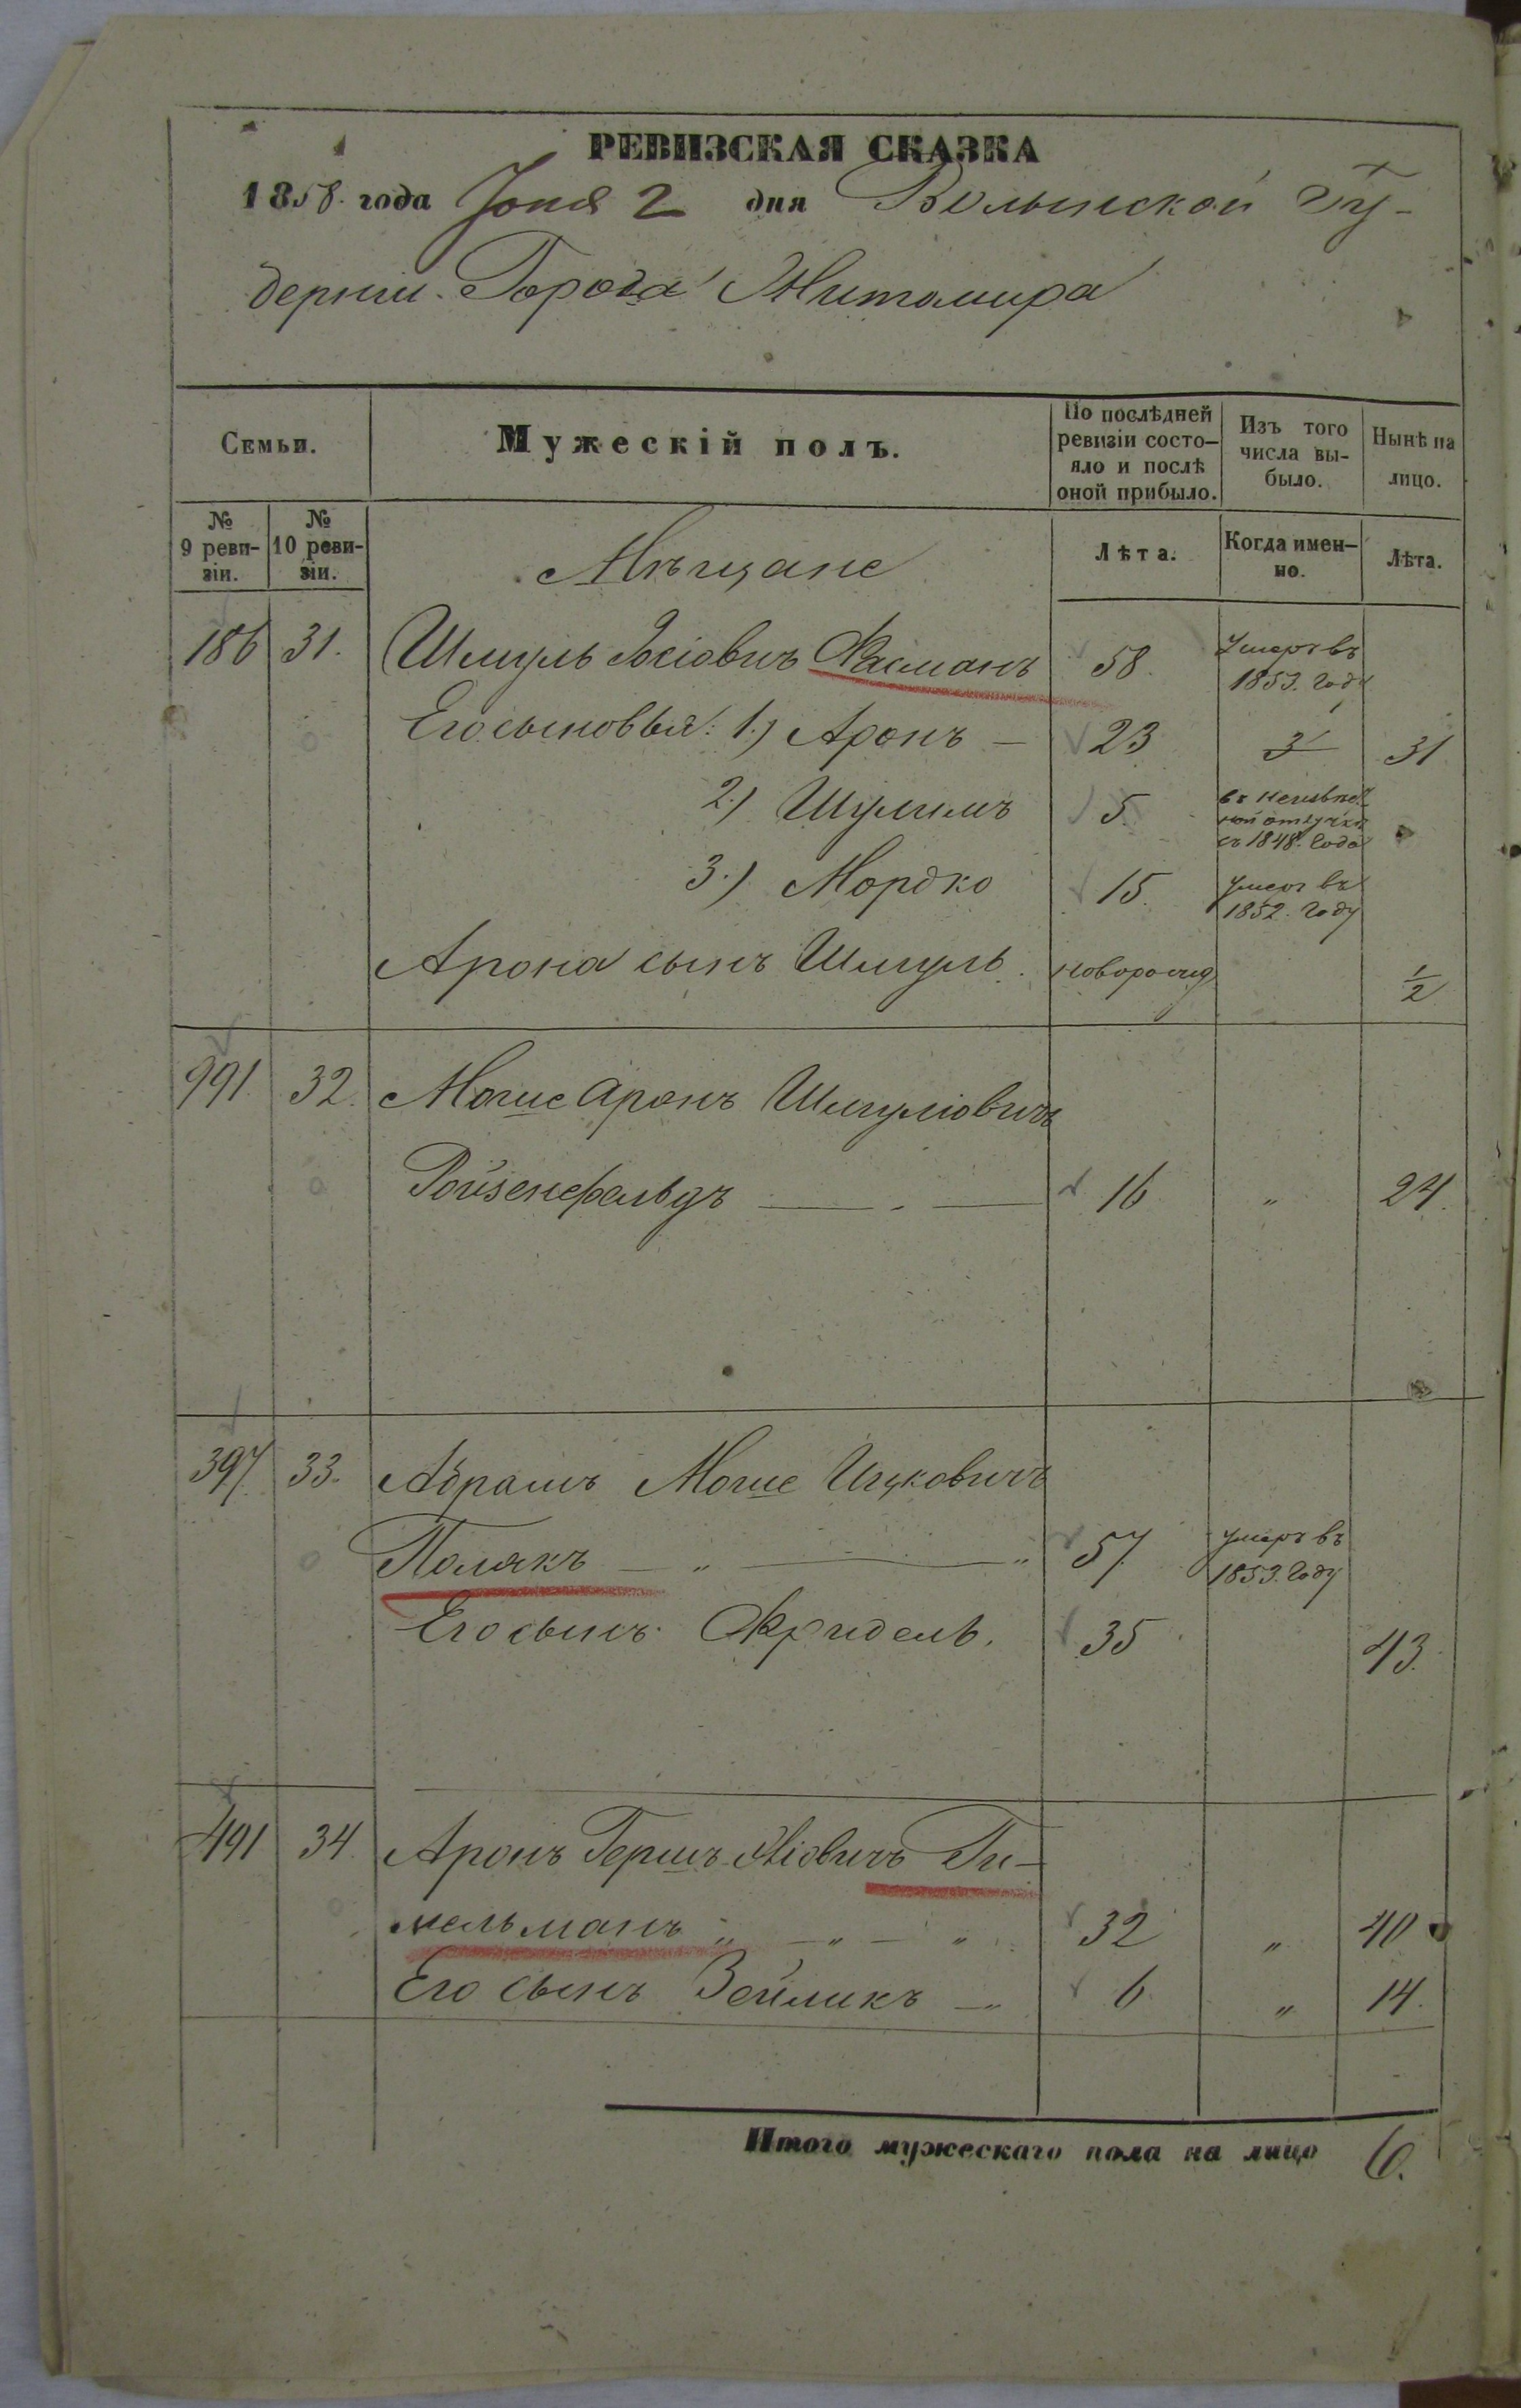 РЕВИЗСКАЯ СКАЗКА
1858. года Іюня 2 дня Волынской Гу-
берніи. Города Житомира
Семьи.
Мужескій полъ.
По послѣдней ревизіи состо-яло и послѣ оной прибыло.
Изъ того числа вы-было.
Нынѣ на лицо.
№ 9 реви-зіи.
№ 10 реви-зіи.
Мѣщане
Лѣта.
Когда имен-но.
Лѣта.
186 31. Шмуль Іосіовичъ Фасманъ 58. Умеръ въ 1853. году
Его сыновья: 1.) Аронъ — 23 31
2.) Шулимъ 5. въ неизвѣст-ной отлучкѣ съ 1848. года
3.) Мордко 15. умеръ въ 1852. году
Арона сынъ Шмуль. новорожд 1/2
991. 32. Мошe Аронъ Шмуліовичъ
Ройзенфельдъ — . — 16 „ 24.
397. 33. Абрамъ Мошe Ицковичъ
Полякъ — „ — „ 57. умеръ въ 1853. году
Его сынъ Фридель. 35 43.
491 34. Аронъ Гершъ Ги-
мельманъ „ — „ — „ 32 „ 40
Его сынъ Зейликъ — „ 6. „ 14.
Итого мужескаго пола на лицо 6.